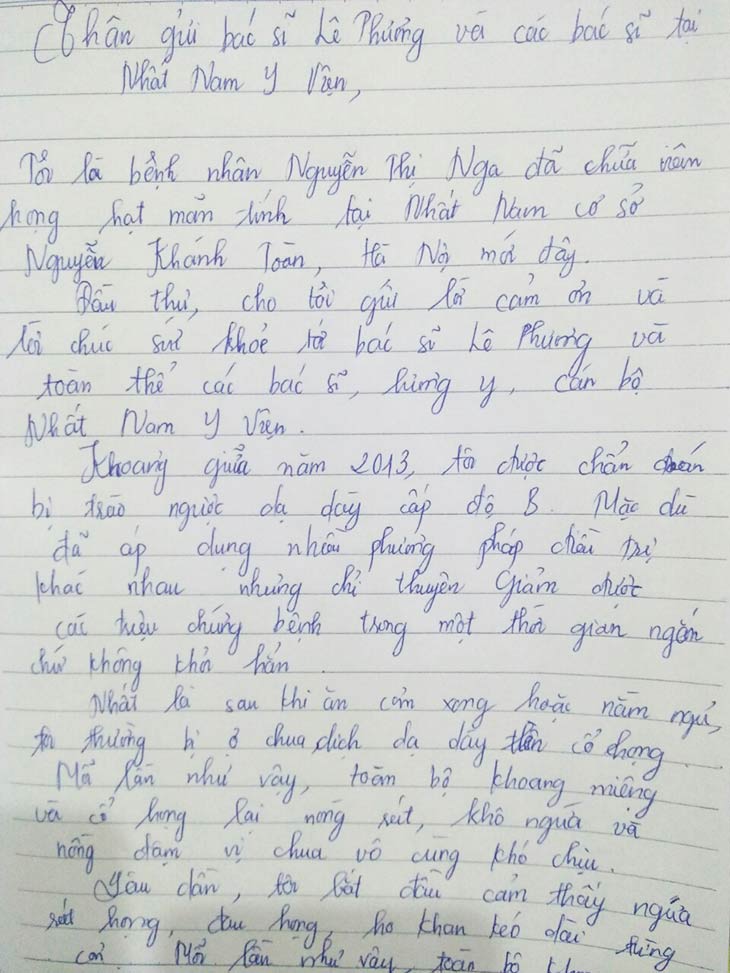 Thân gửi bác sĩ Lê Phương và các bác sĩ tại
Nhất Nam Y Viện,
Tôi là bệnh nhân Nguyễn Thị Nga đã chữa viêm
họng hạt mãn tính tại Nhất Nam cơ sở
Nguyễn Khánh Toàn, Hà Nội mới đây.
Đầu thư, cho tôi gửi lời cảm ơn và
lời chúc sức khoẻ tới bác sĩ Lê Phương và
toàn thể các bác sĩ, lương y, cán bộ
Nhất Nam Y Viện.
Khoảng giữa năm 2013, tôi được chẩn đoán
bị trào ngược dạ dày cấp độ B. Mặc dù
đã áp dụng nhiều phương pháp điều trị
khác nhau nhưng chỉ thuyên giảm được
các triệu chứng bệnh trong một thời gian ngắn
chứ không khỏi hẳn.
Nhất là sau khi ăn cơm xong hoặc nằm ngủ,
tôi thường bị ợ chua, dịch dạ dày lên cổ họng.
Mỗi lần như vậy, toàn bộ khoang miệng
và cổ họng lại nóng rát, khô ngứa và
nồng đậm vị chua vô cùng khó chịu.
Lâu dần, tôi bắt đầu cảm thấy ngứa
rát họng, đau họng, ho khan kéo dài từng
cơn. Mỗi lần như vậy, toàn bộ